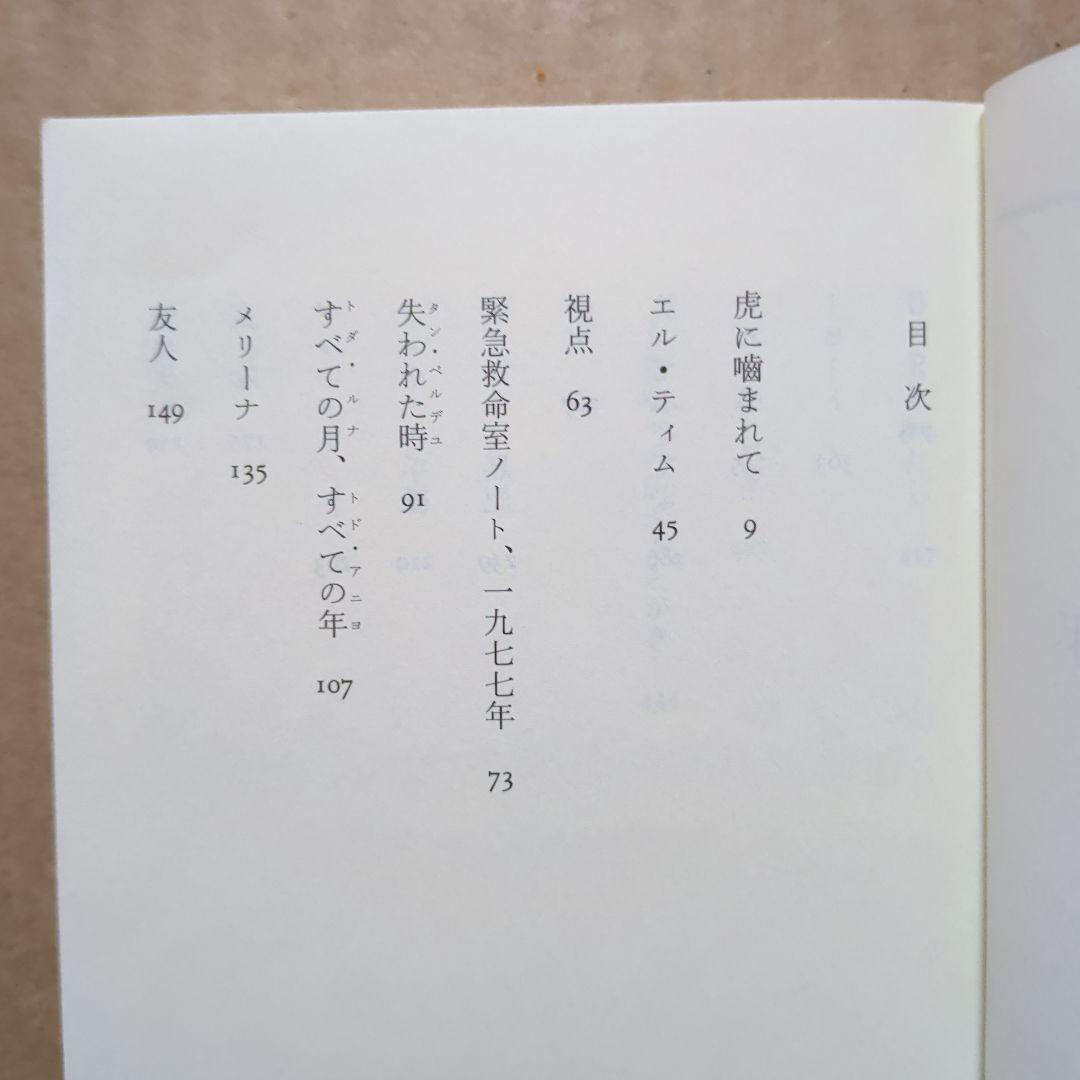 目次
虎に嚙まれて 9
エル・ティム 45
視点 63
緊急救命室ノート、一九七七年 73
タン・ペルデュ
失われた時 91
トダ・ルナ トド・アニヨ
すべての月、すべての年 107
メリーナ 135
友人 149